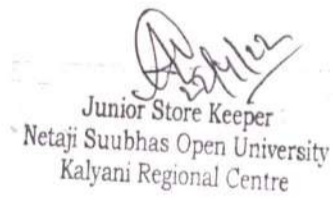 22/4/22
Junior Store Keeper
Netaji Suubhas Open University
Kalyani Regional Centre